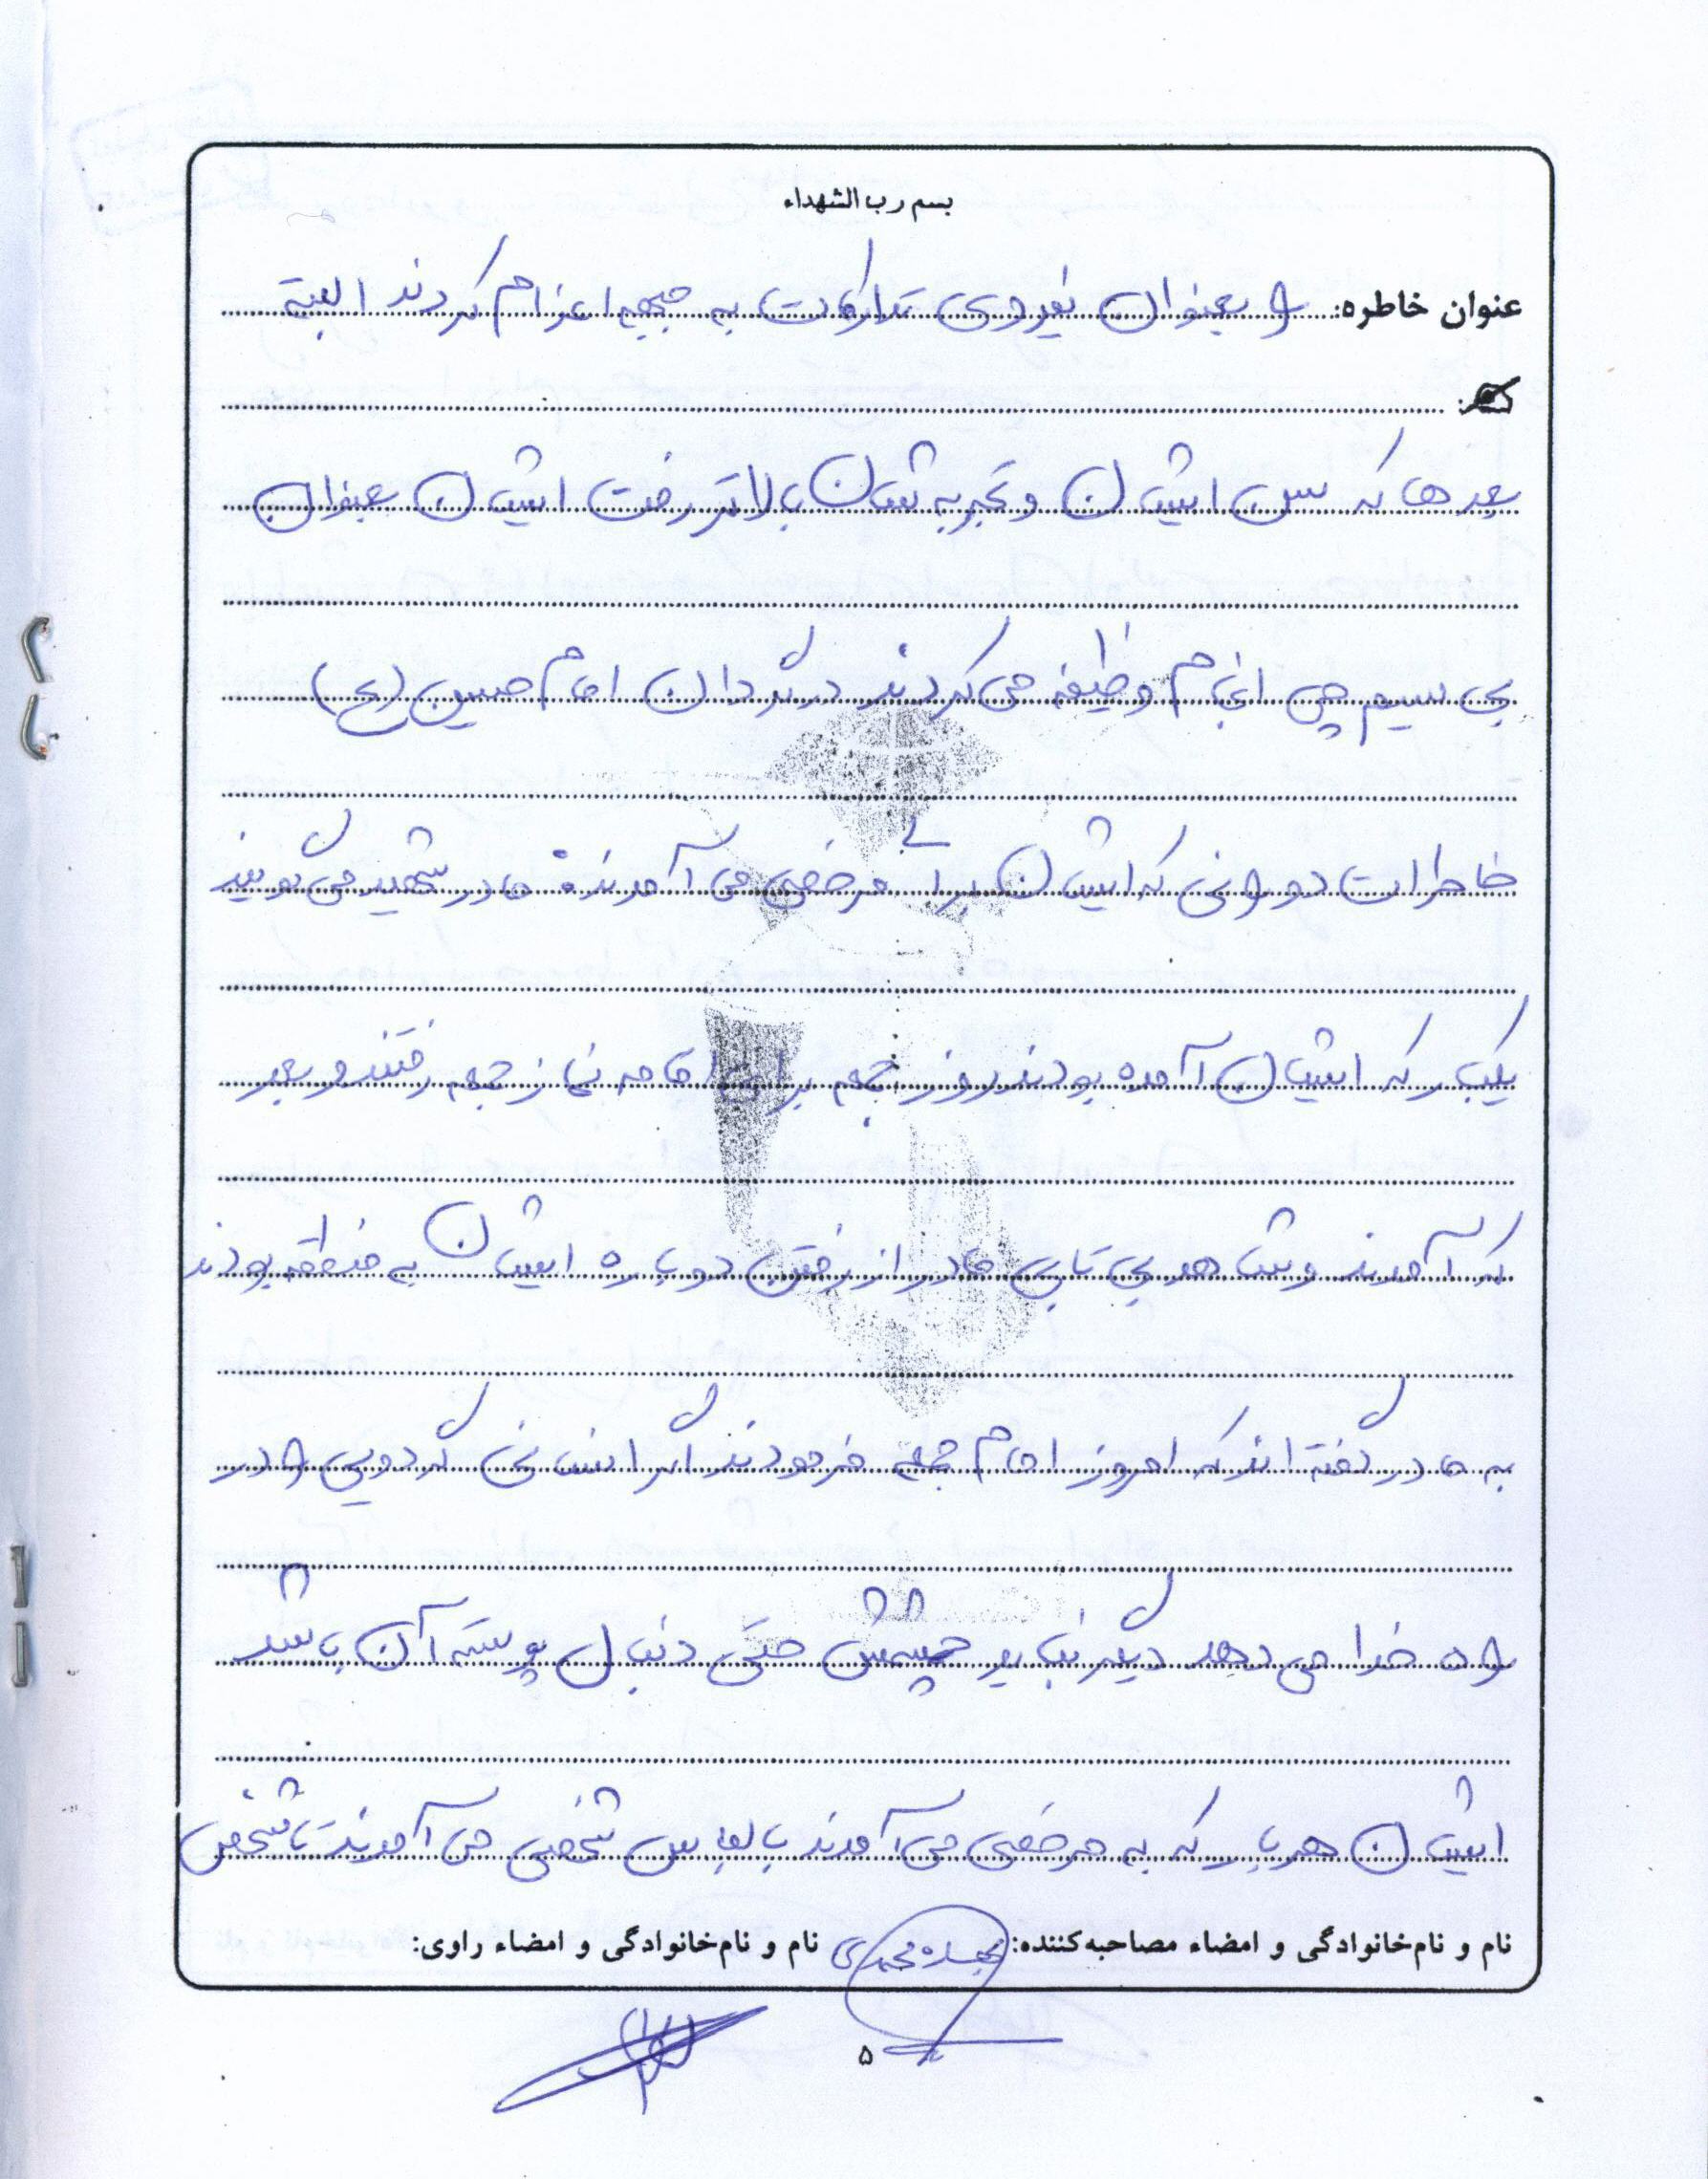 بسم رب الشهداء
عنوان خاطره: را بعنوان نیروی تدارکات به جبهه اعزام کردند البته
بعدها که سن ایشان و تجربه شان بالاتر رفت ایشان بعنوان
بی سیم چی انجام وظیفه می کردند در گردان امام حسین (ع)
خاطرات دورانی که ایشان برای مرخصی می آمدند: مادر شهید می گویند
یکبار که ایشان آمده بودند روز جمعه برای اقامه نماز جمعه رفتند و بعد
که آمدند و شاهد بی تابی مادر از رفتن دوباره ایشان به منطقه بودند
به مادر گفته اند که امروز امام جمعه فرمودند اگر انسان گردویی را در
راه خدا می دهد دیگر نباید چشمش حتی دنبال پوسته آن باشد
ایشان هر بار که به مرخصی می آمدند با لباس شخصی می آمدند تا شخص
نام و نام‌خانوادگی و امضاء مصاحبه‌کننده: نام و نام‌خانوادگی و امضاء راوی:
۵